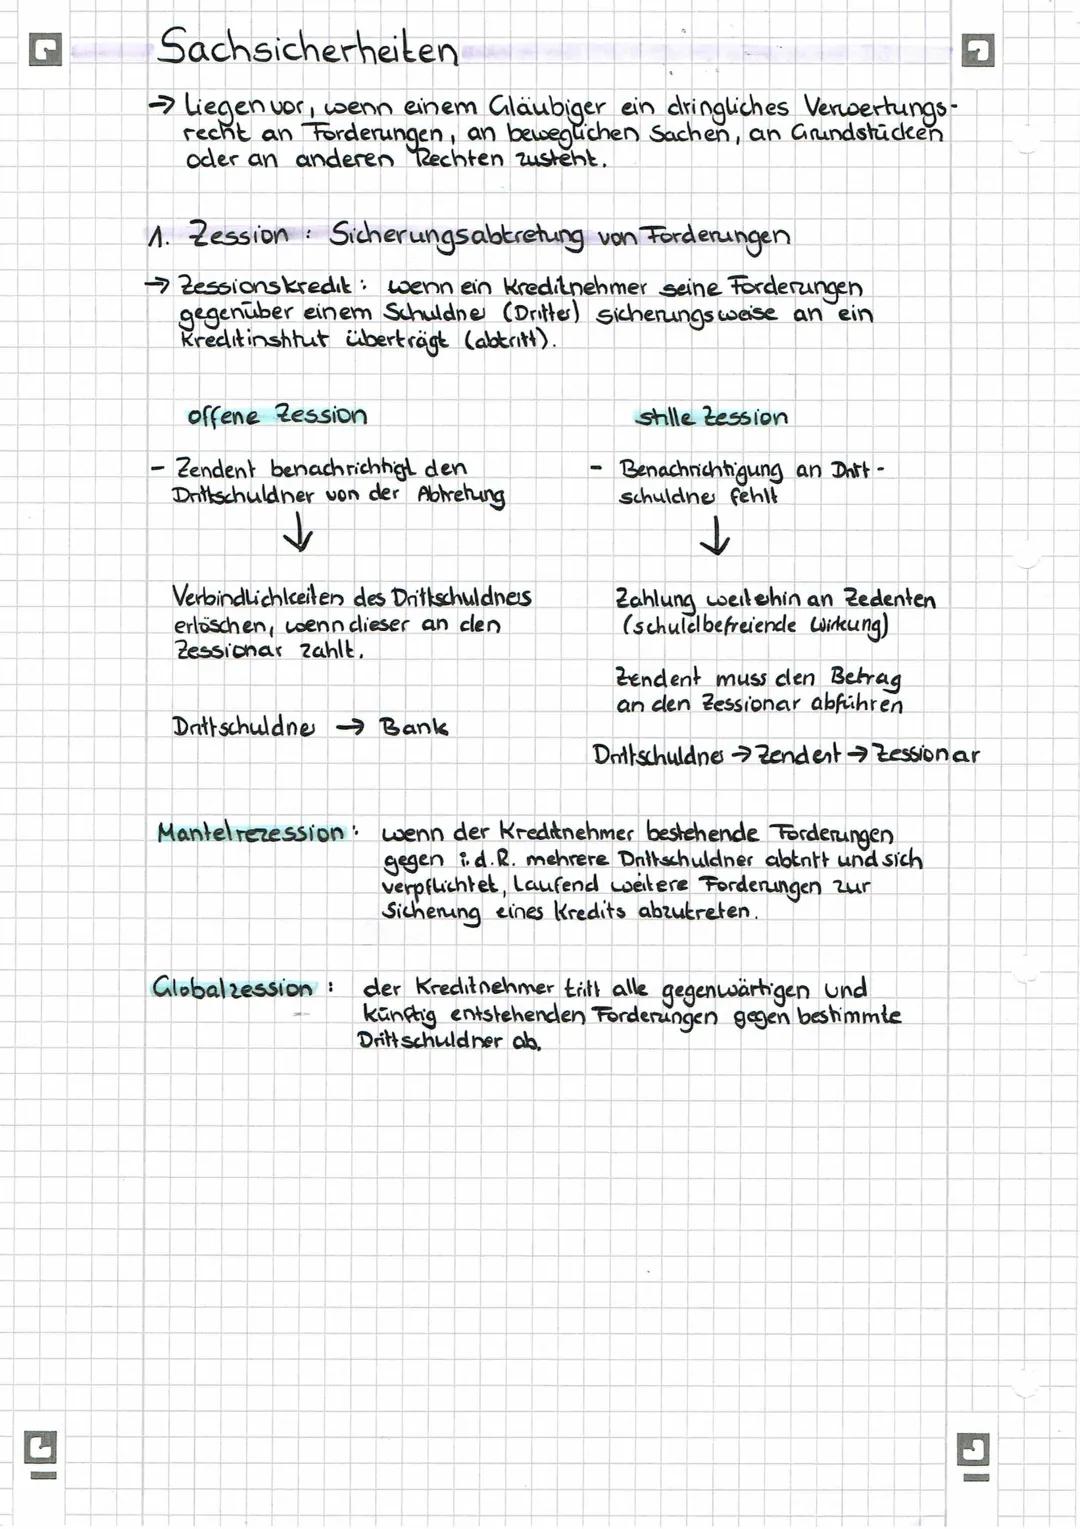 Sachsicherheiten
→ Liegen vor, wenn einem Gläubiger ein dringliches Verwertungs-
recht an Forderungen, an beweglichen Sachen, an Grundstücken
oder an anderen Rechten zusteht.
1. Zession : Sicherungsabtretung von Forderungen
→ Zessionskredit : wenn ein Kreditnehmer seine Forderungen
gegenüber einem Schuldner (Dritter) sicherungsweise an ein
Kreditinstitut überträgt (abtritt).
offene Zession
- Zendent benachrichtigt den
Drittschuldner von der Abtretung
↓
Verbindlichkeiten des Drittschuldners
erlöschen, wenn dieser an den
Zessionar zahlt.
Drittschuldner → Bank
stille Zession
- Benachrichtigung an Dritt-
schuldner fehlt
↓
Zahlung weiterhin an Zedenten
(schuldbefreiende Wirkung)
Zendent muss den Betrag
an den Zessionar abführen
Drittschuldner → Zendent → Zessionar
Mantelrezession : wenn der Kreditnehmer bestehende Forderungen
gegen i.d.R. mehrere Drittschuldner abtritt und sich
verpflichtet, Laufend weitere Forderungen zur
Sicherung eines Kredits abzutreten.
Globalzession : der Kreditnehmer tritt alle gegenwärtigen und
künftig entstehenden Forderungen gegen bestimmte
Drittschuldner ab.